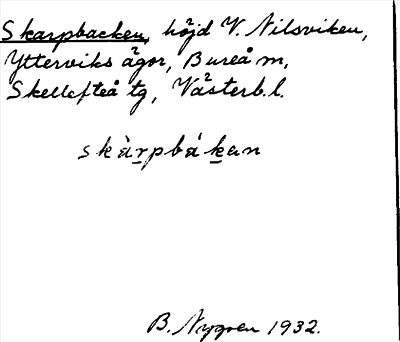 Skarpbacken, höjd V. Nilsviken,
Ytterviks ägor, Bureå m,
Skellefteå tg, Västerb.l.
skàrpbákan
B. Nygren 1932.